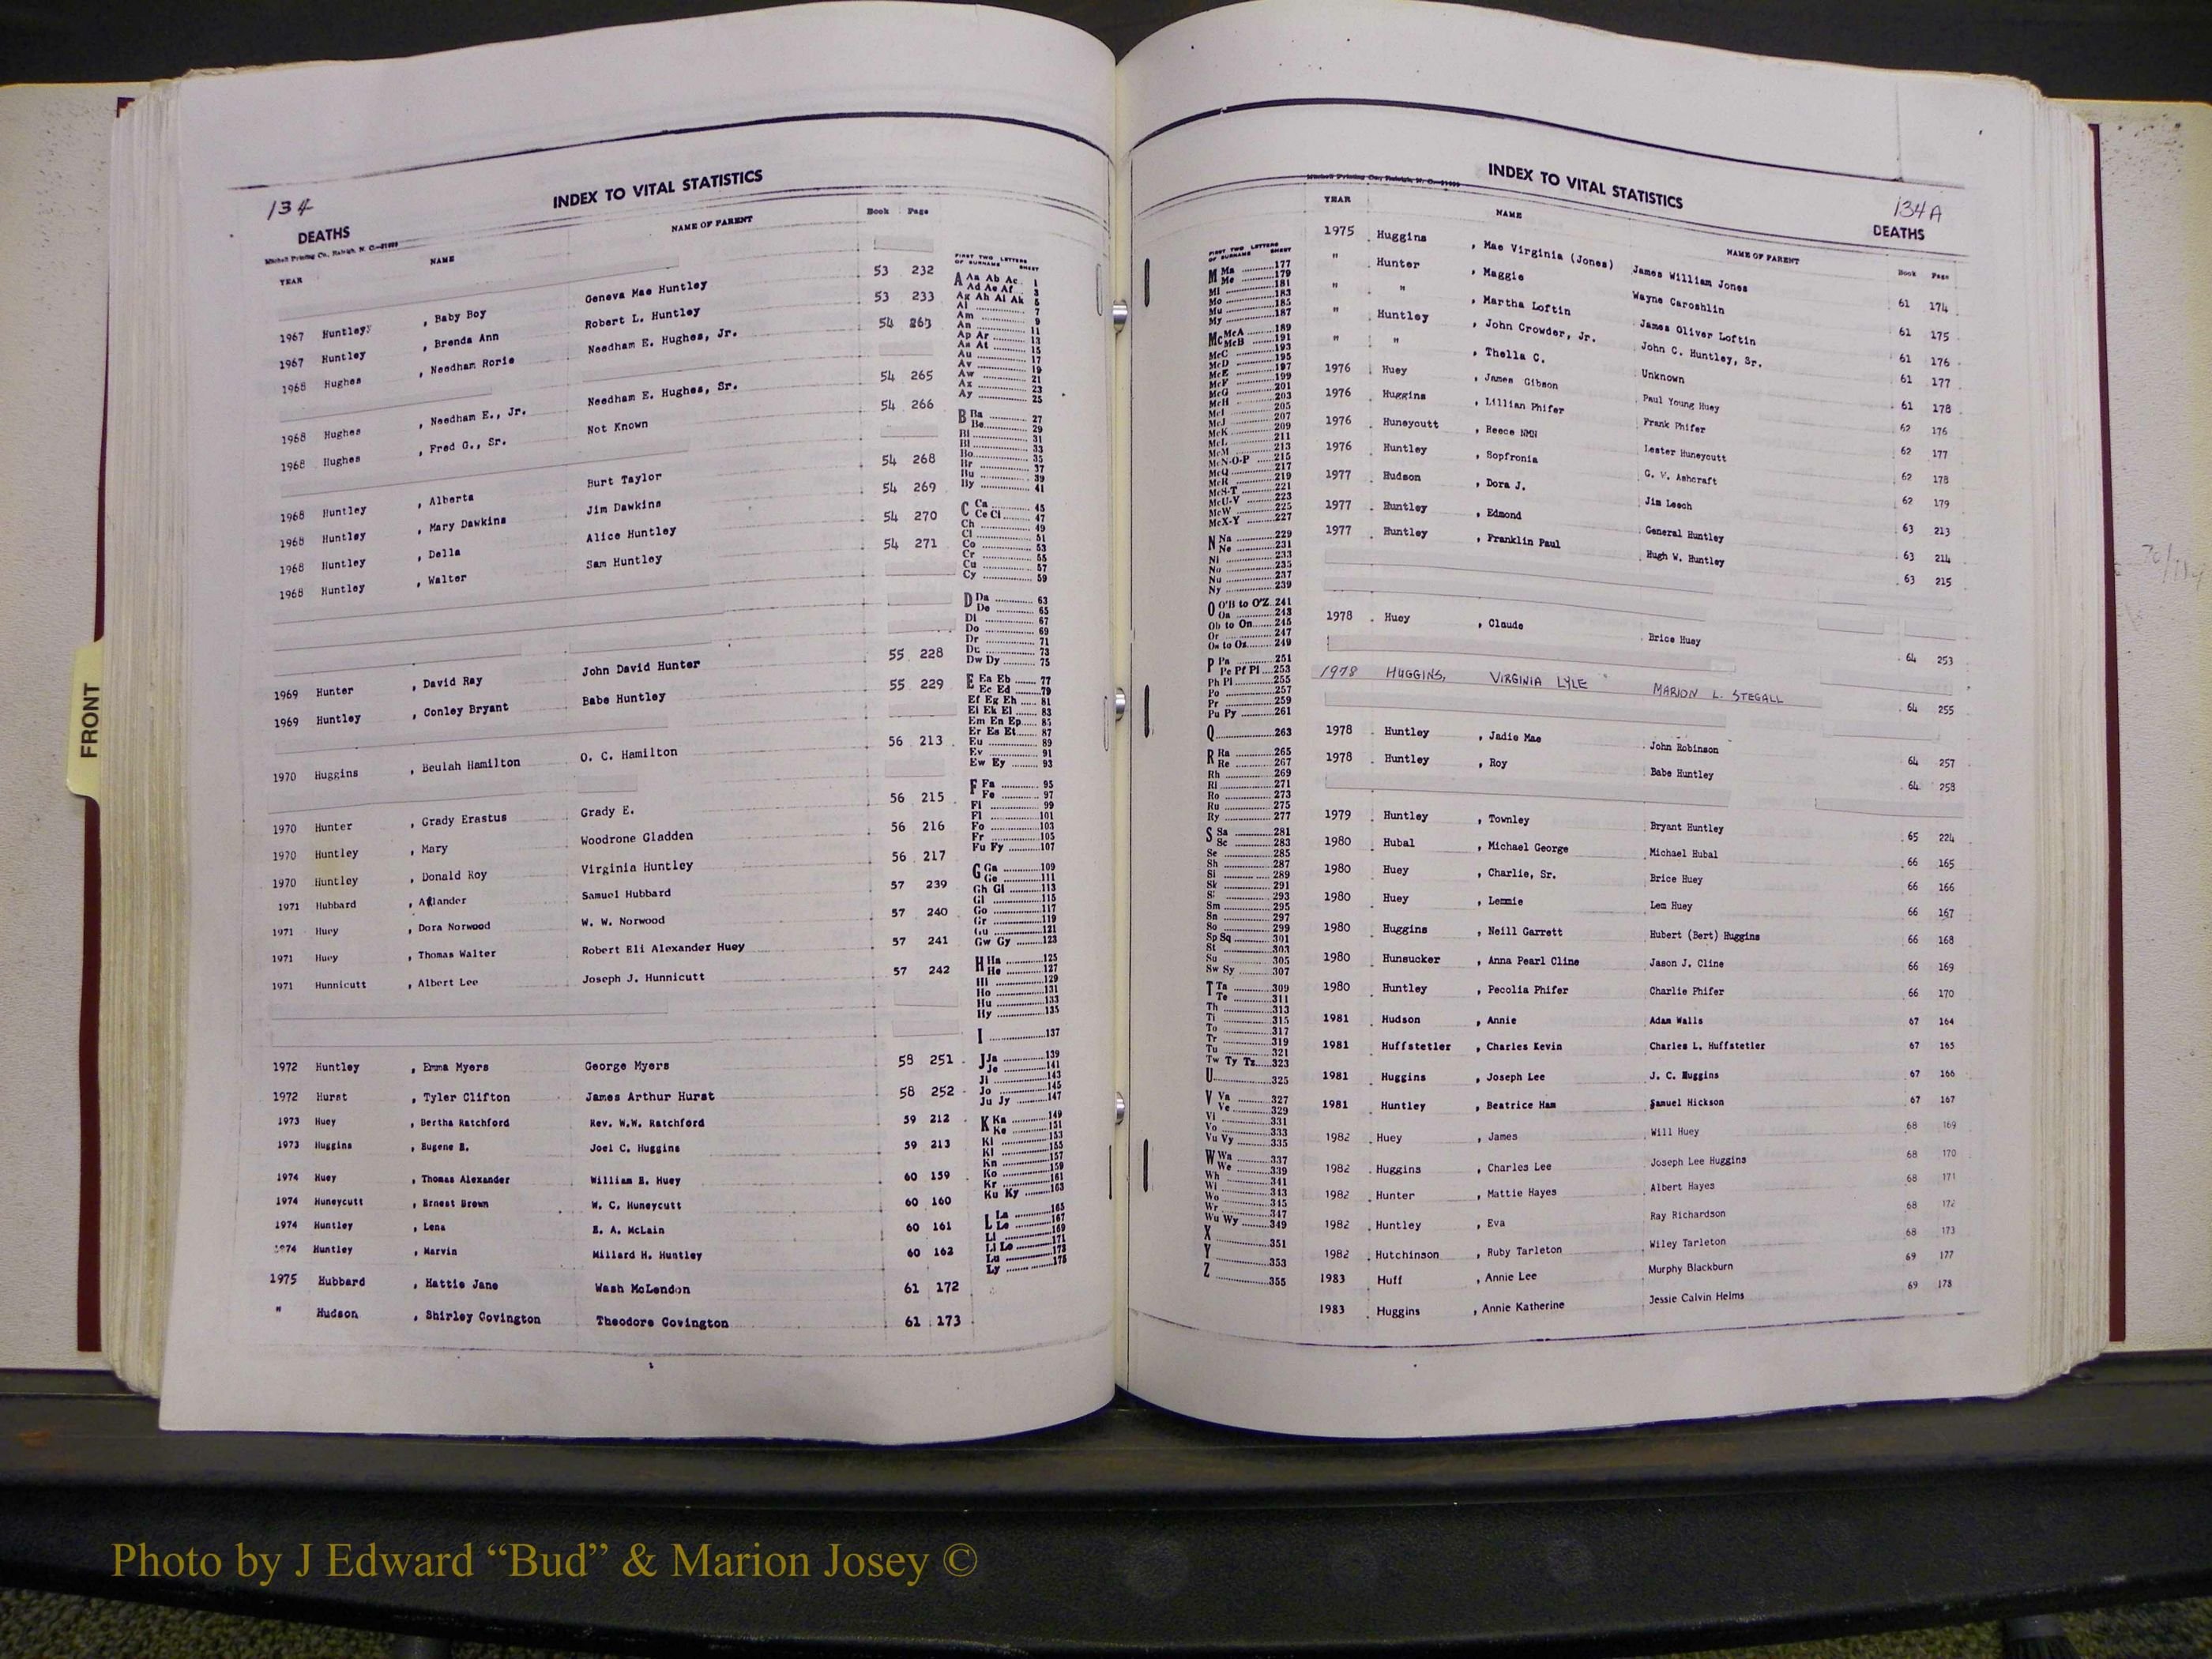 134
INDEX TO VITAL STATISTICS
DEATHS
Mitchell Printing Co., Raleigh, N. C.
YEAR NAME NAME OF PARENT Book Page
1967 Huntley , Baby Boy Geneva Mae Huntley 53 232
1967 Huntley , Brenda Ann Robert L. Huntley 53 233
1968 Hughes , Needham Rorie Needham E. Hughes, Jr. 54 263
1968 Hughes , Needham E., Jr. Needham E. Hughes, Sr. 54 265
1968 Hughes , Fred G., Sr. Not Known 54 266
1968 Huntley , Alberta Burt Taylor 54 268
1968 Huntley , Mary Dawkins Jim Dawkins 54 269
1968 Huntley , Della Alice Huntley 54 270
1968 Huntley , Walter Sam Huntley 54 271
1969 Hunter , David Ray John David Hunter 55 228
1969 Huntley , Conley Bryant Babe Huntley 55 229
1970 Huggins , Beulah Hamilton O. C. Hamilton 56 213
1970 Hunter , Grady Erastus Grady E. 56 215
1970 Huntley , Mary Woodrone Gladden 56 216
1970 Huntley , Donald Roy Virginia Huntley 56 217
1971 Hubbard , Atlander Samuel Hubbard 57 239
1971 Huey , Dora Norwood W. W. Norwood 57 240
1971 Huey , Thomas Walter Robert Eli Alexander Huey 57 241
1971 Hunnicutt , Albert Lee Joseph J. Hunnicutt 57 242
1972 Huntley , Emma Myers George Myers 58 251
1972 Hurst , Tyler Clifton James Arthur Hurst 58 252
1973 Huey , Bertha Ratchford Rev. W.W. Ratchford 59 212
1973 Huggins , Eugene B. Joel C. Huggins 59 213
1974 Huey , Thomas Alexander William E. Huey 60 159
1974 Huneycutt , Ernest Brown W. C. Huneycutt 60 160
1974 Huntley , Lena E. A. McLain 60 161
1974 Huntley , Marvin Millard H. Huntley 60 162
1975 Hubbard , Hattie Jane Wash McLendon 61 172
" Hudson , Shirley Covington Theodore Covington 61 173
FIRST TWO LETTERS OF SURNAME SHEET
A Aa Ab Ac 1
Ad Ae Af 3
Ag Ah Ai Ak 5
Al 7
Am 9
An 11
Ap Ar 13
As At 15
Au 17
Av 19
Aw 21
Ax 23
Ay 25
B Ba 27
Be 29
Bi 31
Bl 33
Bo 35
Br 37
Bu 39
By 41
C Ca 45
Ce Ci 47
Ch 49
Cl 51
Co 53
Cr 55
Cu 57
Cy 59
D Da 63
De 65
Di 67
Do 69
Dr 71
Du 73
Dw Dy 75
E Ea Eb 77
Ec Ed 79
Ef Eg Eh 81
Ei Ek El 83
Em En Ep 85
Er Es Et 87
Eu 89
Ev 91
Ew Ey 93
F Fa 95
Fe 97
Fi 99
Fl 101
Fo 103
Fr 105
Fu Fy 107
G Ga 109
Ge 111
Gh Gi 113
Gl 115
Go 117
Gr 119
Gu 121
Gw Gy 123
H Ha 125
He 127
Hi 129
Ho 131
Hu 133
Hy 135
I 137
J Ja 139
Je 141
Ji 143
Jo 145
Ju Jy 147
K Ka 149
Ke 151
Ki 153
Kl 155
Kn 157
Ko 159
Kr 161
Ku Ky 163
L La 165
Le 167
Li 169
Ll Lo 171
Lu 173
Ly 175
134A
INDEX TO VITAL STATISTICS
DEATHS
Mitchell Printing Co., Raleigh, N. C.
YEAR NAME NAME OF PARENT Book Page
FIRST TWO LETTERS OF SURNAME SHEET
M Ma 177
Me 179
Mi 181
Mo 183
Mu 185
My 187
Mc McA 189
McB 191
McC 193
McD 195
McE 197
McF 199
McG 201
McH 203
McI 205
McJ 207
McK 209
McL 211
McM 213
McN-O-P 215
McQ 217
McR 219
McS-T 221
McU-V 223
McW 225
McX-Y 227
N Na 229
Ne 231
Ni 233
No 235
Nu 237
Ny 239
O O'B to O'Z 241
Oa 243
Ob to On 245
Or 247
Os to Oz 249
P Pa 251
Pe Pf Pi 253
Ph Pl 255
Po 257
Pr 259
Pu Py 261
Q 263
R Ra 265
Re 267
Rh 269
Ri 271
Ro 273
Ru 275
Ry 277
S Sa 281
Sc 283
Se 285
Sh 287
Si 289
Sk 291
Sl 293
Sm 295
Sn 297
So 299
Sp Sq 301
St 303
Su 305
Sw Sy 307
T Ta 309
Te 311
Th 313
Ti 315
To 317
Tr 319
Tu 321
Tw Ty Tz 323
U 325
V Va 327
Ve 329
Vi 331
Vo 333
Vu Vy 335
W Wa 337
We 339
Wh 341
Wi 343
Wo 345
Wr 347
Wu Wy 349
X 351
Y 353
Z 355
1975 Huggins , Mae Virginia (Jones) James William Jones 61 174
" Hunter , Maggie Wayne Caroshlin 61 175
" " , Martha Loftin James Oliver Loftin 61 176
" Huntley , John Crowder, Jr. John C. Huntley, Sr. 61 177
" " , Thella C. Unknown 61 178
1976 Huey , James Gibson Paul Young Huey 62 176
1976 Huggins , Lillian Phifer Frank Phifer 62 177
1976 Huneycutt , Reece NMN Lester Huneycutt 62 178
1976 Huntley , Sopfronia G. V. Ashcraft 62 179
1977 Hudson , Dora J. Jim Leech 63 213
1977 Huntley , Edmond General Huntley 63 214
1977 Huntley , Franklin Paul Hugh W. Huntley 63 215
1978 Huey , Claude Brice Huey 64 253
1978 HUGGINS, VIRGINIA LYLE MARION L. STEGALL 64 255
1978 Huntley , Jadie Mae John Robinson 64 257
1978 Huntley , Roy Babe Huntley 64 258
1979 Huntley , Townley Bryant Huntley 65 224
1980 Hubal , Michael George Michael Hubal 66 165
1980 Huey , Charlie, Sr. Brice Huey 66 166
1980 Huey , Lemmie Lem Huey 66 167
1980 Huggins , Neill Garrett Hubert (Bert) Huggins 66 168
1980 Hunsucker , Anna Pearl Cline Jason J. Cline 66 169
1980 Huntley , Pecolia Phifer Charlie Phifer 66 170
1981 Hudson , Annie Adam Walls 67 164
1981 Huffstetler , Charles Kevin Charles L. Huffstetler 67 165
1981 Huggins , Joseph Lee J. C. Huggins 67 166
1981 Huntley , Beatrice Ham Samuel Hickson 67 167
1982 Huey , James Will Huey 68 169
1982 Huggins , Charles Lee Joseph Lee Huggins 68 170
1982 Hunter , Mattie Hayes Albert Hayes 68 171
1982 Huntley , Eva Ray Richardson 68 172
1982 Hutchinson , Ruby Tarleton Wiley Tarleton 68 173
1983 Huff , Annie Lee Murphy Blackburn 69 177
1983 Huggins , Annie Katherine Jessie Calvin Helms 69 178
FRONT
Photo by J Edward “Bud” & Marion Josey ©